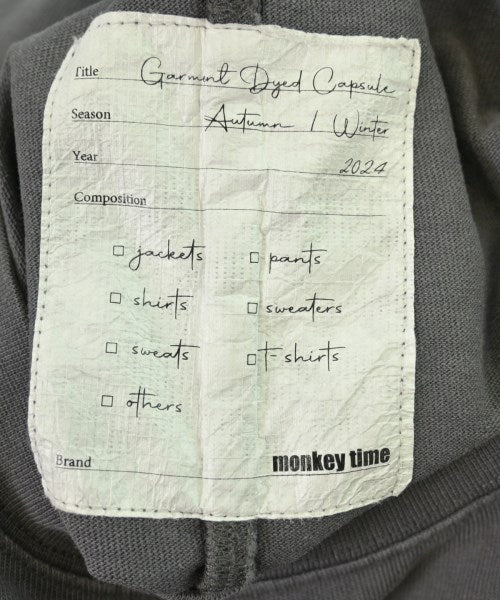 Title Garment Dyed Capsule
Season Autumn / Winter
Year 2024
Composition
□ jackets □ pants
□ shirts □ sweaters
□ sweats □ T-shirts
□ others
Brand monkey time